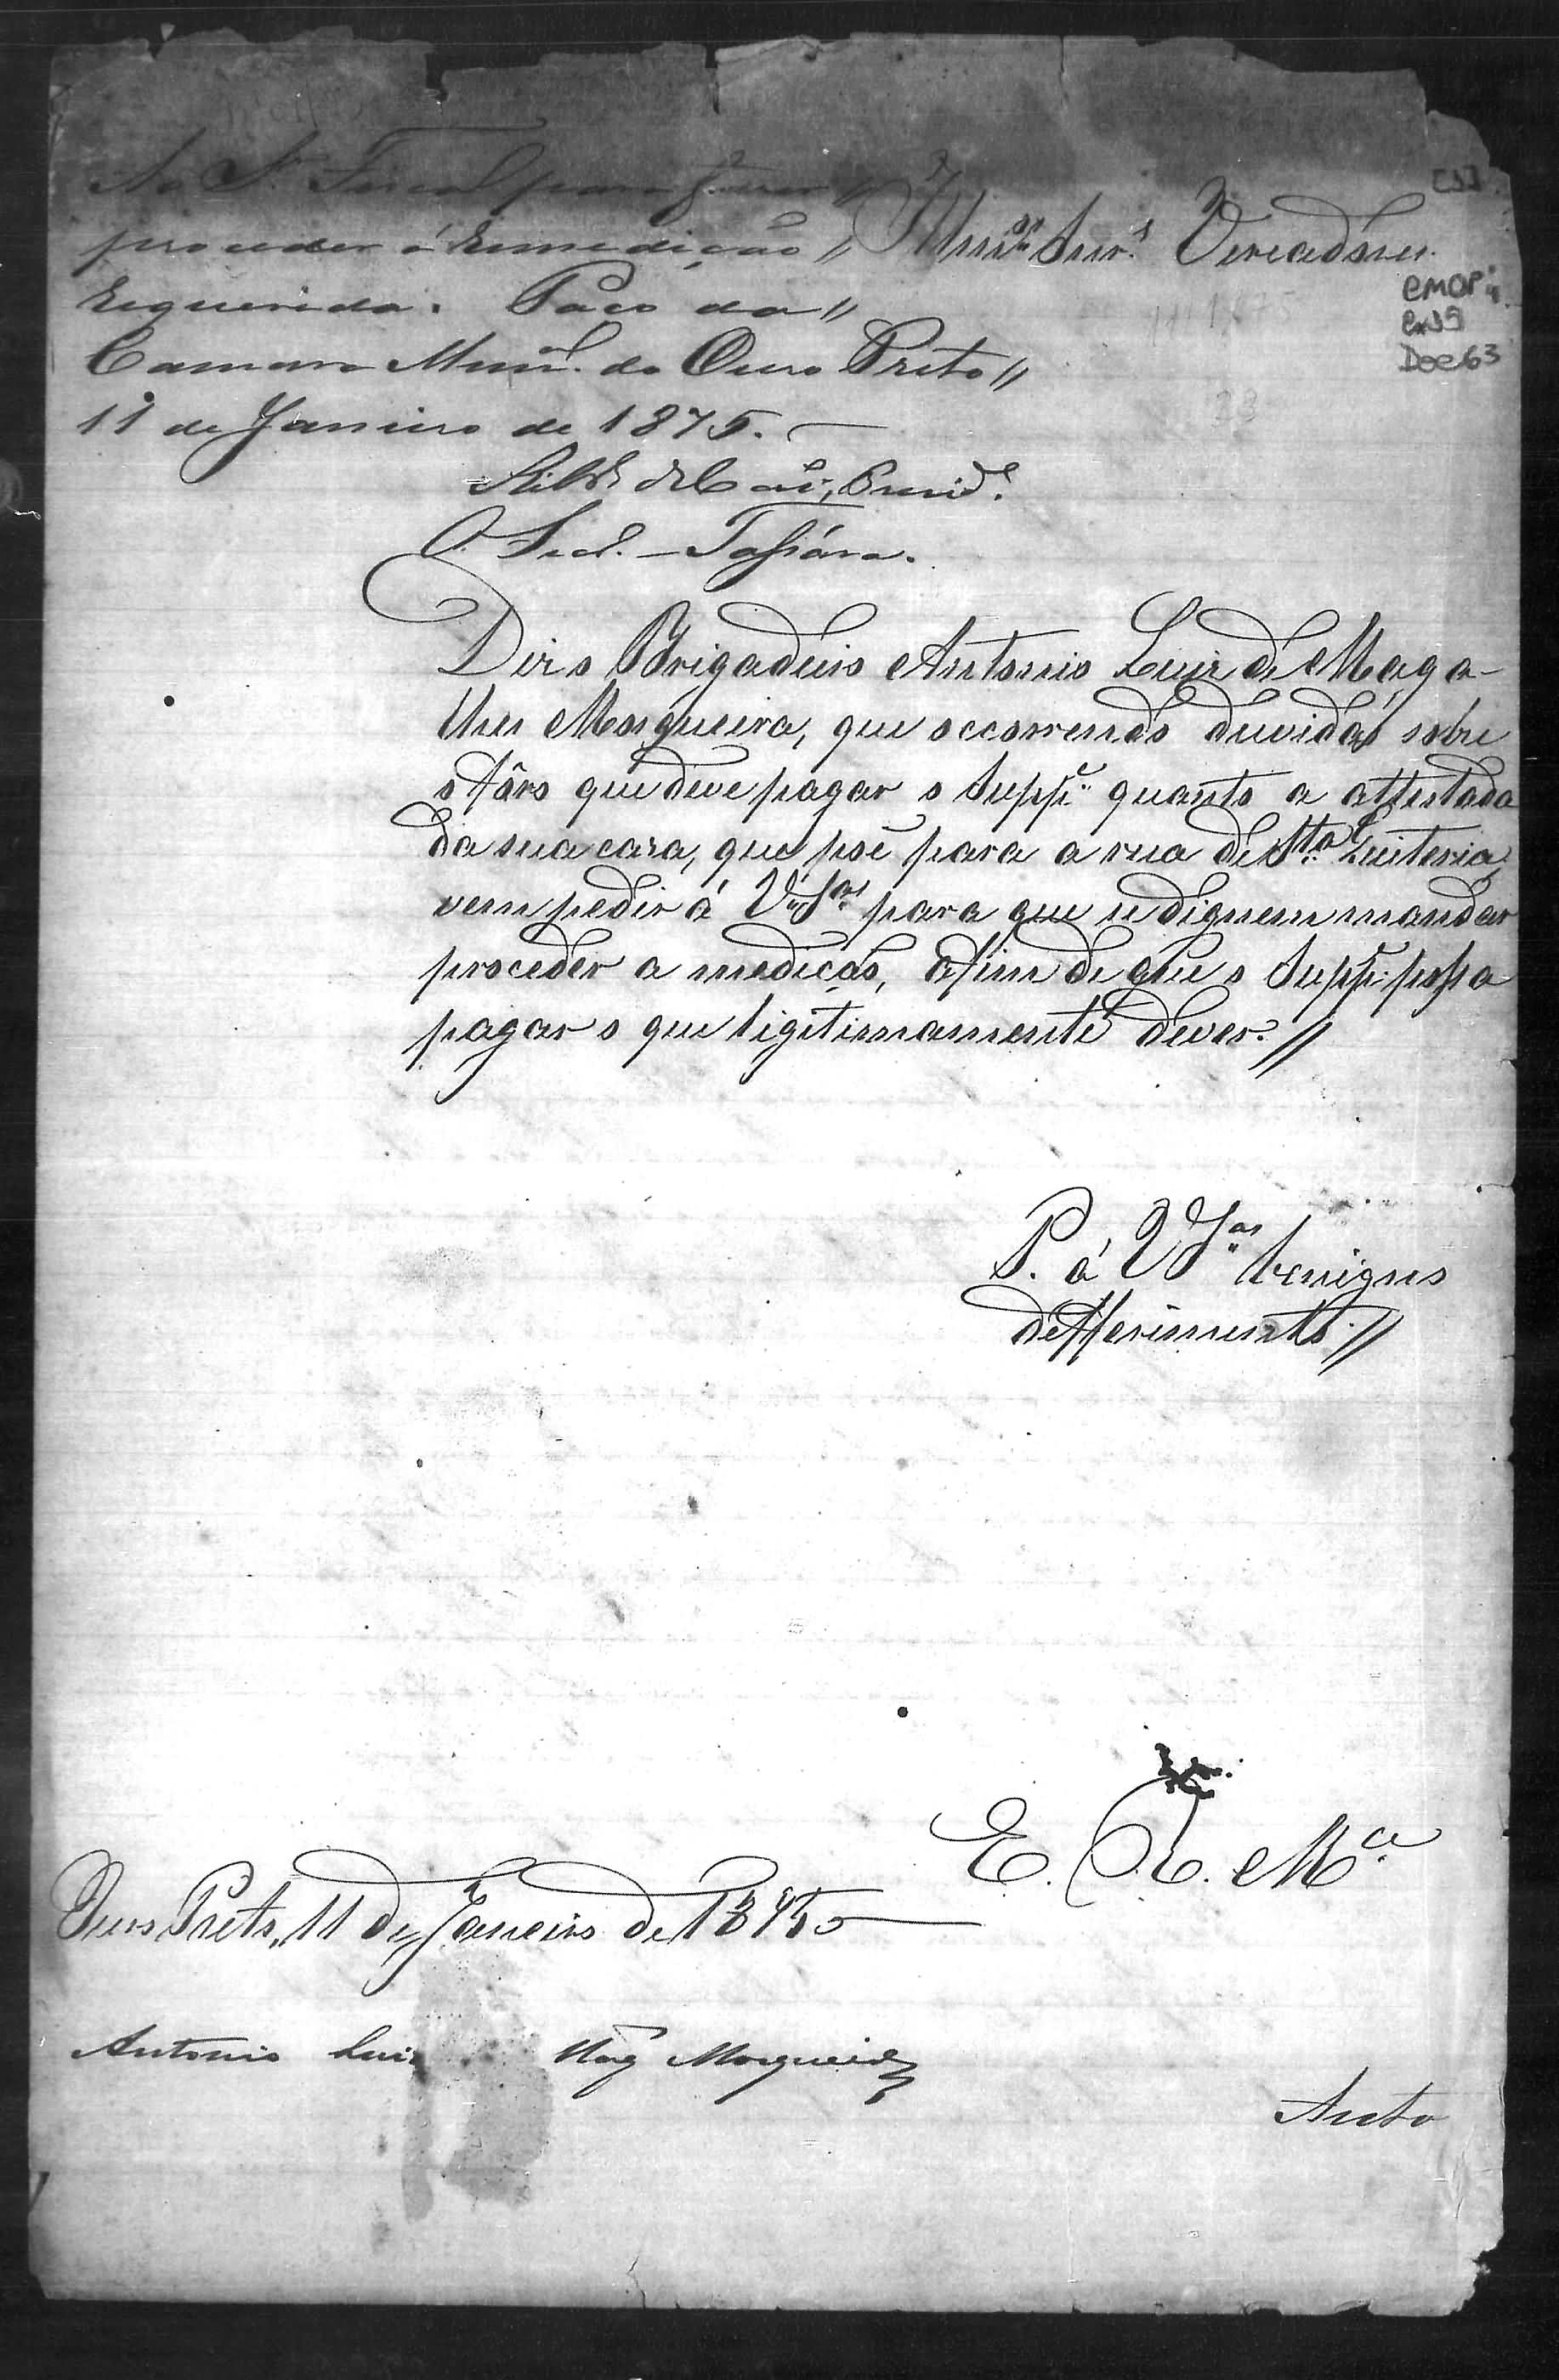 Ao Sr. Fiscal para fazer
proceder á remedição //
requerida. Paço da //
Camara Mun.al do Ouro Preto //
11 de Janeiro de 1875.
Presid.e
O Secr. — Tassára.
Illmos. Snrs. Vereadores.
[1]
CMOP
Cx19
Doc63
Diz o Brigadeiro Antonio Luiz de Maga-
lhes Mosqueira, que occorrendo duvidas sobre
o fôro que deve pagar o Supp.e quanto a attestada
da sua caza, que põe para a rua de Sta. Quiteria,
vem pedir á V.Sas. para que se dignem mandar
proceder a medição, afim de que o Supp.e possa
pagar o que ligitimamente dever. //
P. á VSas. benigno
defferimento. //
E. R. Mce.
Ouro Preto, 11 de Janeiro de 1875
Antonio Luiz Mag Mosqueira
Auto